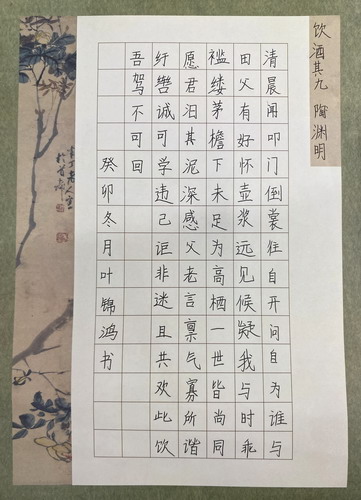 饮酒其九 陶渊明
清晨闻叩门倒裳往自开问自为谁与
田父有好怀壶浆远见候疑我与时乖
褴缕茅檐下未足为高栖一世皆尚同
愿君汩其泥深感父老言禀气寡所谐
纡辔诚可学违己讵非迷且共欢此饮
吾驾不可回
癸卯冬月叶锦鸿书